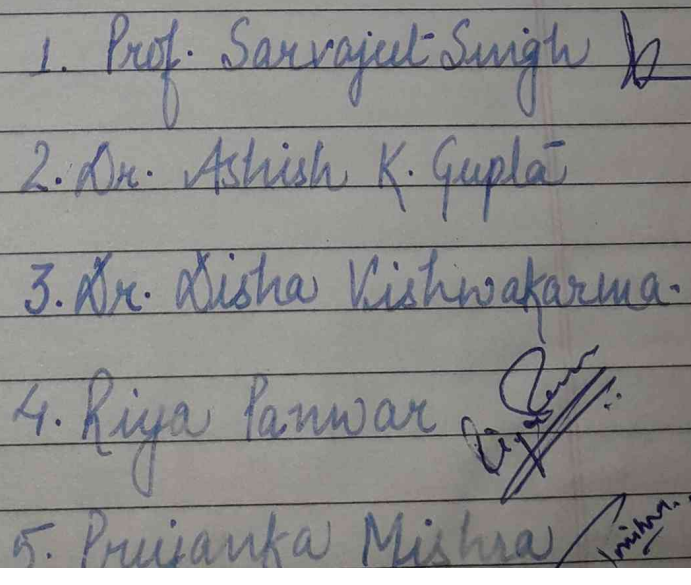 1. Prof. Sarvajeet Singh
2. Dr. Ashish K. Gupta
3. Dr. Disha Vishwakarma.
4. Riya Panwar
5. Priyanka Mishra